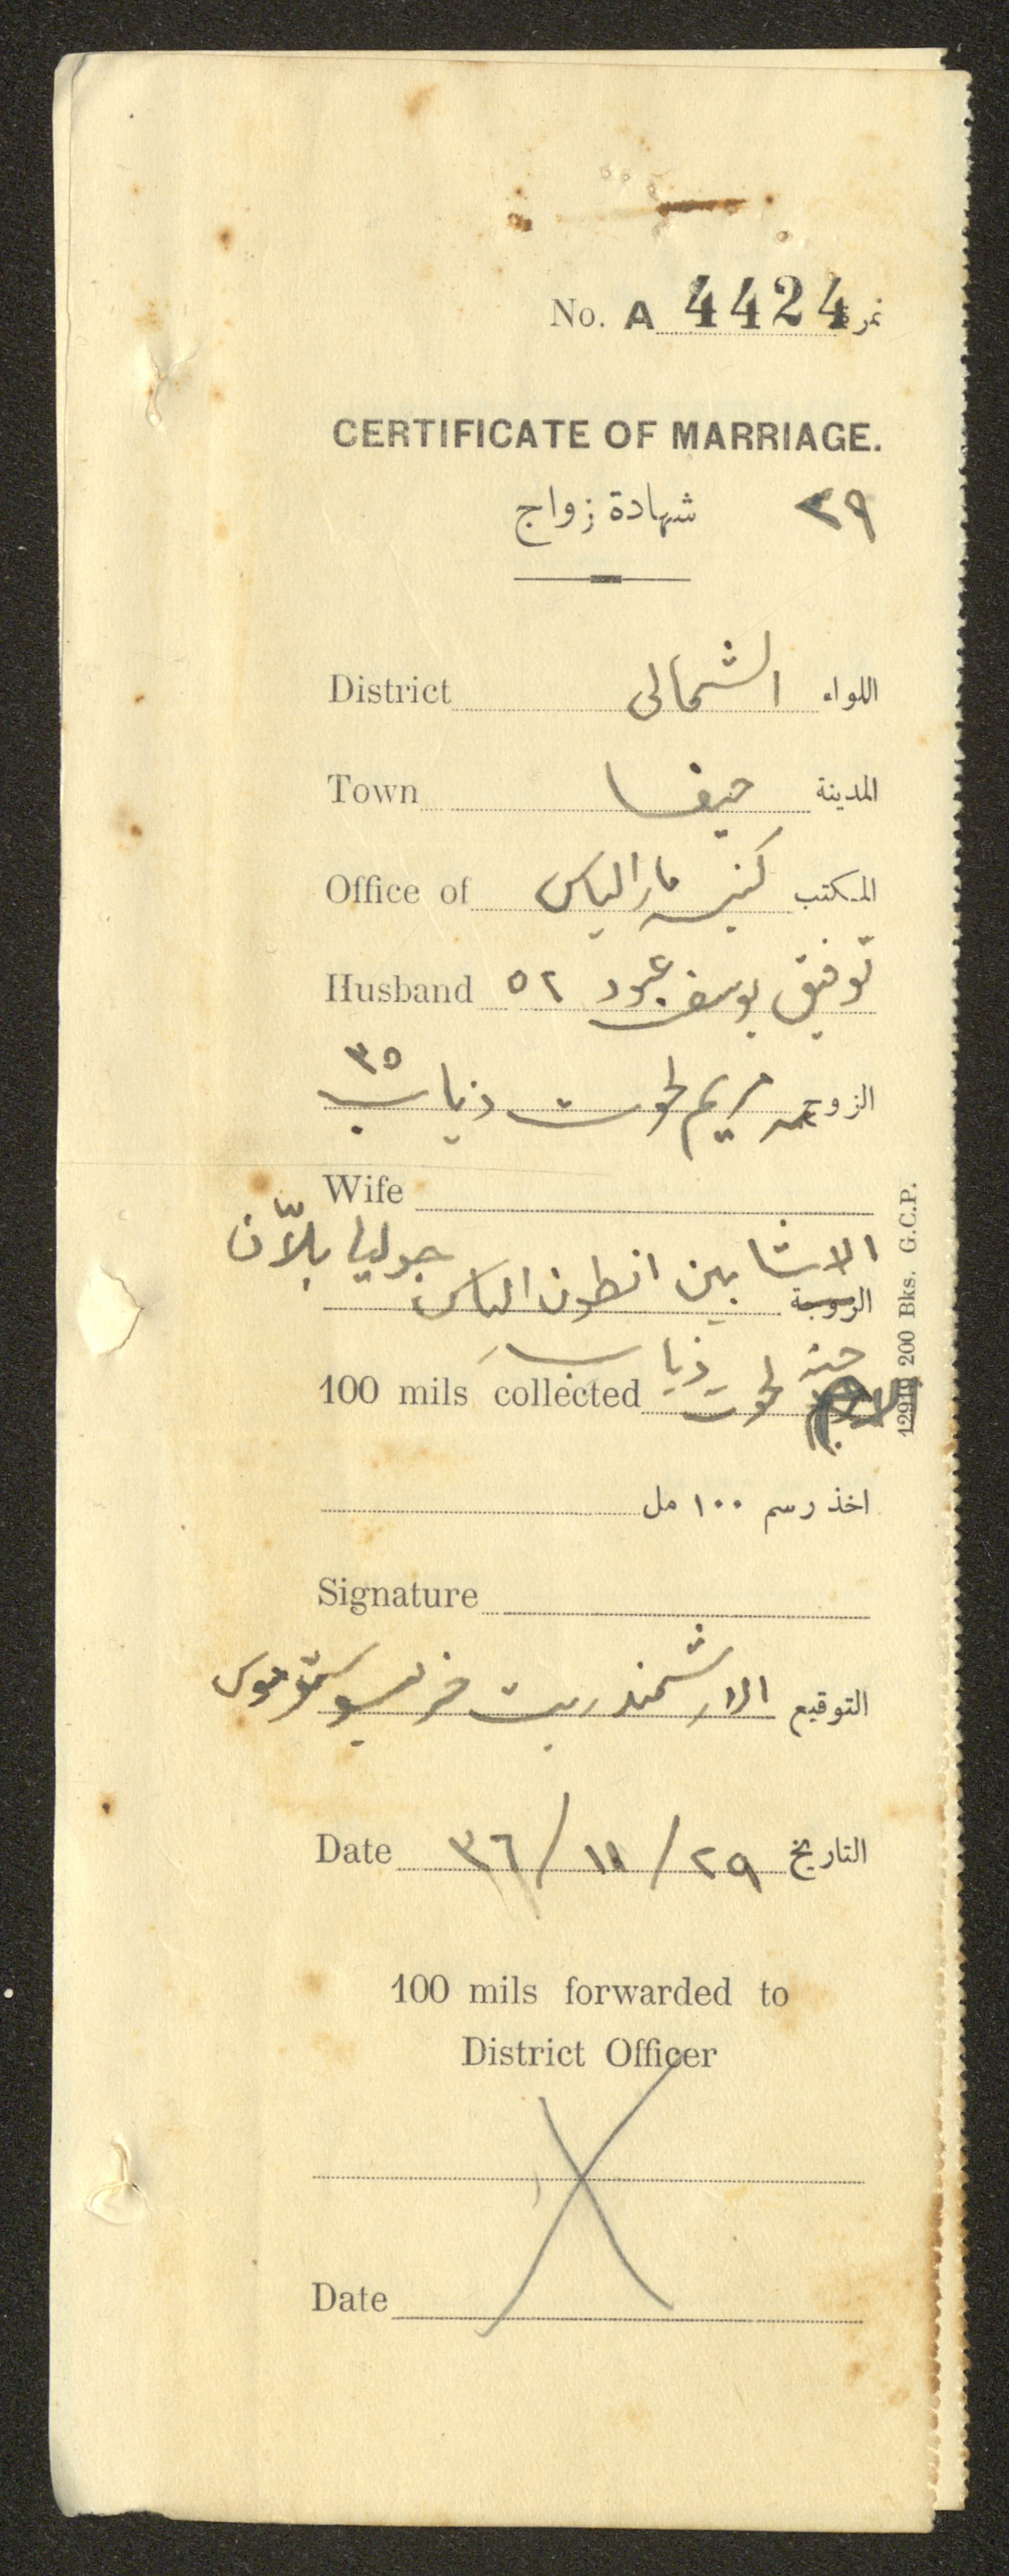 No. A 4424 نمرة
CERTIFICATE OF MARRIAGE.
شهادة زواج ٣٩
District الشمالي اللواء
Town حيفا المدينة
Office of كنيسة مار الياس المكتب
Husband توفيق يوسف عبود ٥٢
الزوجه مريم لحود ذياب ٣٥
Wife
الاشابين انطون الياس جوليا بلّان
الزوجة
حنه لحود ذياب
100 mils collected
اخذ رسم ١٠٠ مل
Signature
التوقيع الارشمندريت خريسوستموس
Date ٢٩/١١/٣٦ التاريخ
100 mils forwarded to
District Officer
Date
12919 200 Bks. G.C.P.